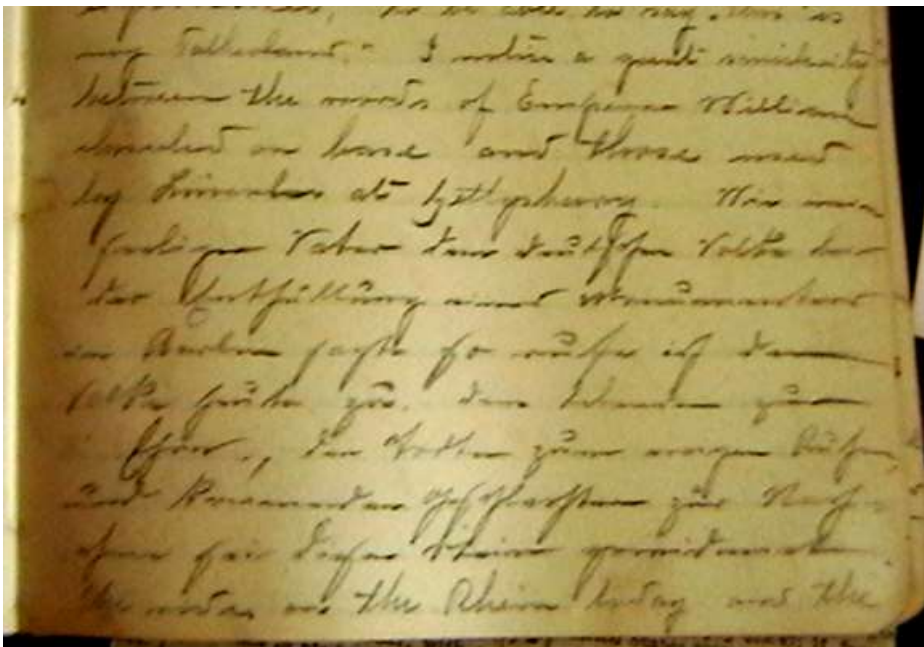 to say, this is
my Fatherland." I notice a great similarity
between the words of Emperor William
on base and those used
by Lincoln at Gettysburg. Wie mein
seliger Vater dem deutschen Volke bei
der Enthüllung eines Monumentes
in Berlin sagte so rufe ich dem
Volke heute zu. Den zur
Ehre, den Todten zum ewigen
und kommenden Geschlechtern zur Nach-
sei dieser Stein
The on the Rhein today and the